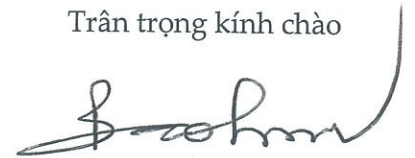 Trân trọng kính chào